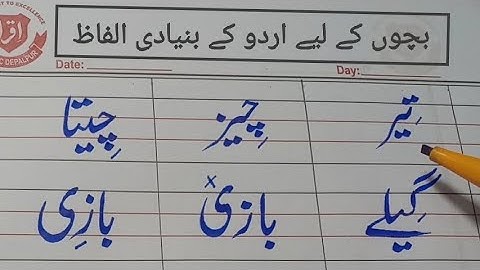 بچوں کے لیے اردو کے بنیادی الفاظ
Date: Day:
تِیر چِیز چِیتا
گِیلے بازیٔ بازِی